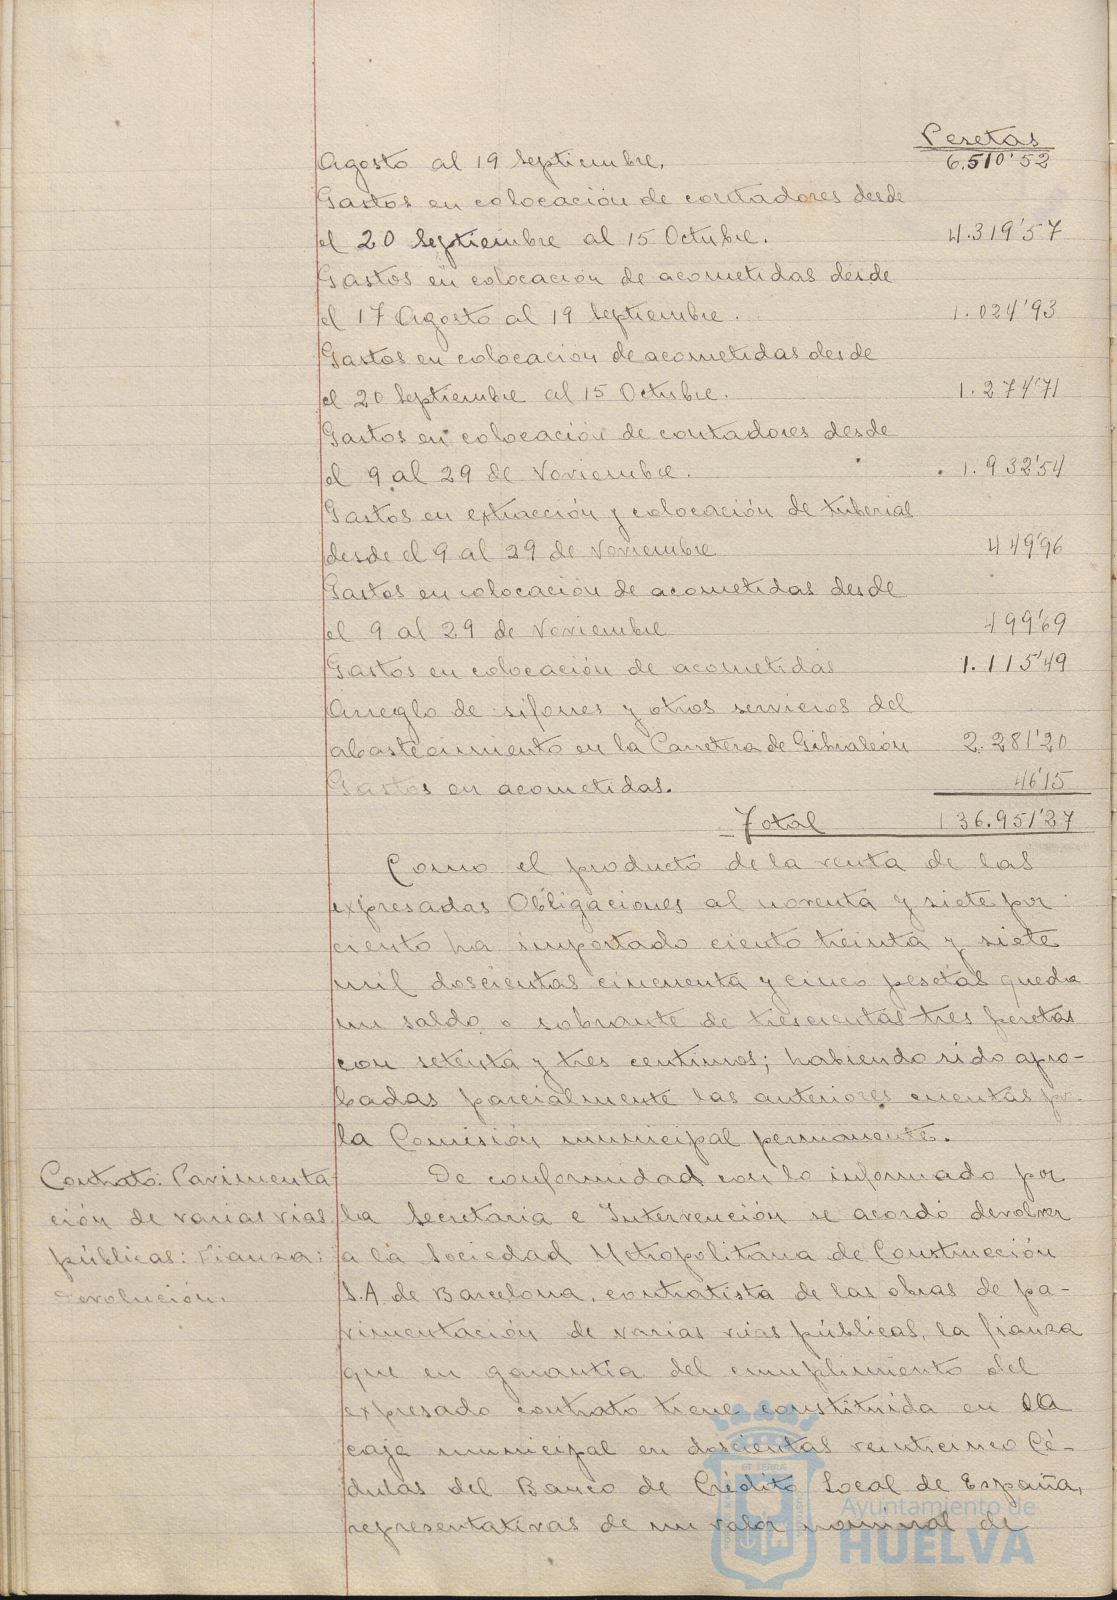 Pesetas
Agosto al 19 Septiembre. 6.510'52
Gastos en colocación de contadores desde
el 20 Septiembre al 15 Octubre. 4.319'57
Gastos en colocación de acometidas desde
el 17 Agosto al 19 Septiembre. 1.024'93
Gastos en colocación de acometidas desde
el 20 Septiembre al 15 Octubre. 1.274'71
Gastos en colocación de contadores desde
el 9 al 29 de Noviembre. 1.932'54
Gastos en extracción y colocación de tuberias
desde el 9 al 29 de Noviembre 449'96
Gastos en colocación de acometidas desde
el 9 al 29 de Noviembre 499'69
Gastos en colocación de acometidas 1.115'49
Arreglo de sifones y otros servicios del
abastecimiento en la Carretera de Gibraleón 2.281'20
Gastos en acometidas. 46'15
Total 136.951'27
Como el producto de la venta de las
expresadas Obligaciones al noventa y siete por
ciento ha importado ciento treinta y siete
mil doscientas cincuenta y cinco pesetas queda
un saldo o sobrante de trescientas tres pesetas
con setenta y tres centimos; habiendo sido apro-
badas parcialmente las anteriores cuentas por
la Comisión municipal permanente.
Contrato: Pavimenta-
ción de varias vias
públicas: Fianza:
Devolución.
De conformidad con lo informado por
la Secretaria e Intervención se acordó devolver
a la Sociedad Metropolitana de Construcción
S.A. de Barcelona, contratista de las obras de pa-
vimentación de varias vias públicas, la fianza
que en garantía del cumplimiento del
expresado contrato tiene constituida en la
caja municipal en doscientas veinticinco Cé-
dulas del Banco de Crédito Local de España,
representativas de un valor nominal de
Ayuntamiento de
HUELVA